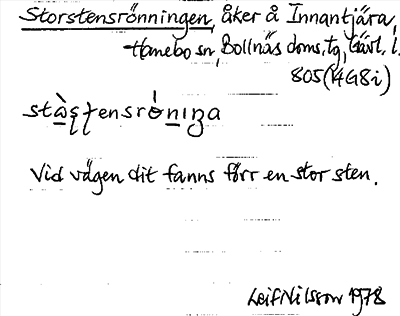 Storstensrönningen, åker å Innantjära,
Hanebo sn, Bollnäs doms. tg, Gävl. l.
805 (14G8i)
stàʂʈensrǿniŋa
Vid vägen dit fanns förr en stor sten.
Leif Nilsson 1978